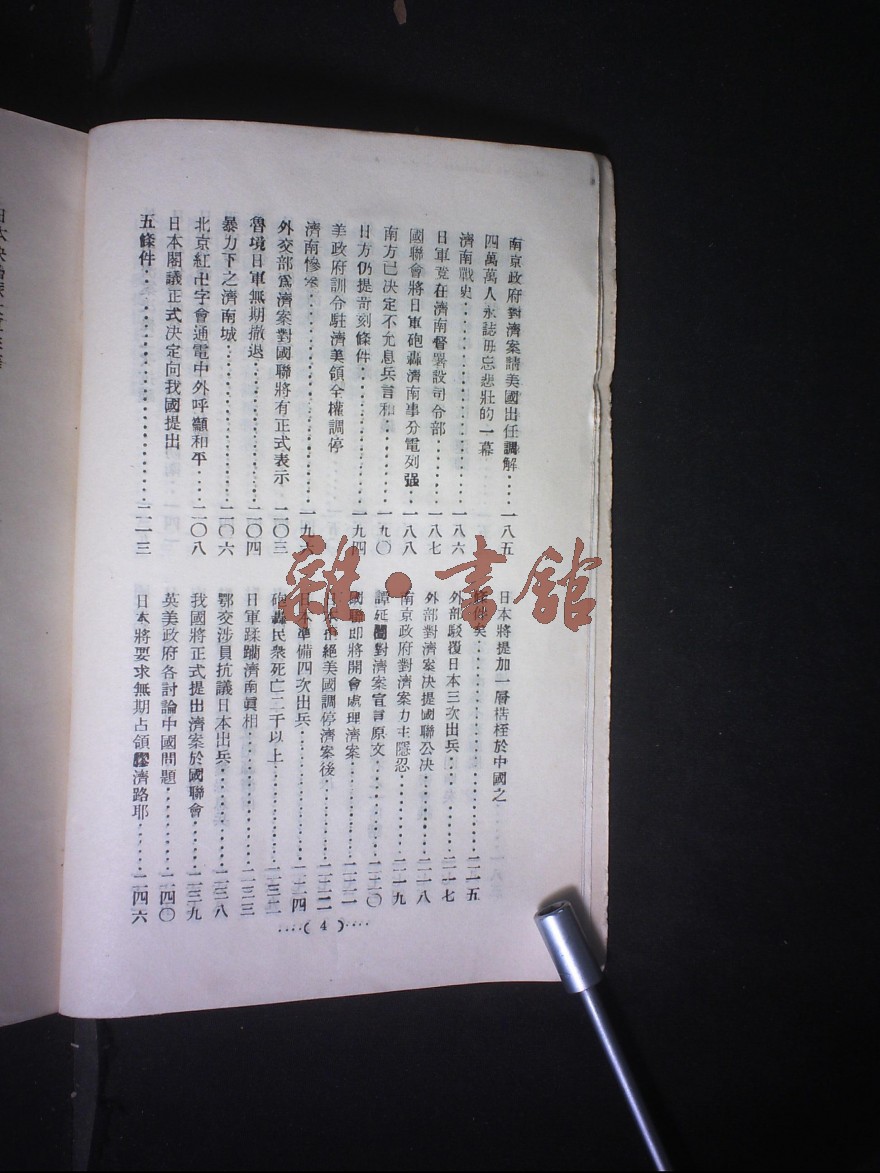 南京政府對濟案請美國出任調解‥‥一八五
四萬萬人永誌毋忘悲壯的一幕
濟南戰史‥‥‥‥‥‥‥‥一八六
日軍竟在濟南督署設司令部‥‥‥一八七
國聯會將日軍砲轟濟南事分電列强‥‥一八八
南方已決定不允息兵言和‥‥‥‥一九〇
日方仍提苛刻條件‥‥‥‥‥‥一九四
美政府訓令駐濟美領全權調停
濟南慘案‥‥‥‥‥‥‥‥一九
外交部爲濟案對國聯將有正式表示‥‥二〇三
魯境日軍無期撤退‥‥‥‥‥‥二〇四
暴力下之濟南城‥‥‥‥‥‥‥二〇六
北京紅卍字會通電中外呼顲和平‥‥二〇八
日本閣議正式決定向我國提出
五條件‥‥‥‥‥‥‥‥‥二一三
日本將提加一層梏桎於中國之
條件矣‥‥‥‥‥‥‥‥‥二一五
外部駁覆日本三次出兵‥‥‥‥‥二一七
外部對濟案決提國聯公決‥‥‥‥二一八
南京政府對濟案力主隱忍‥‥‥‥二一九
譚延闓對濟案宣言原文‥‥‥‥‥二二〇
國聯即將開會處理濟案‥‥‥‥‥二二一
日本拒絕美國調停濟案後‥‥‥‥二二二
日本準備四次出兵‥‥‥‥‥‥二二四
砲轟民衆死亡二千以上‥‥‥‥‥二三二
日軍蹂躪濟南眞相‥‥‥‥‥‥二三三
鄂交涉員抗議日本出兵‥‥‥‥‥二三八
我國將正式提出濟案於國聯會‥‥‥二三九
英美政府各討論中國問題‥‥‥‥二四〇
日本將要求無期占領膠濟路耶‥‥‥二四六
‥‥( 4 )‥‥
雜·書館